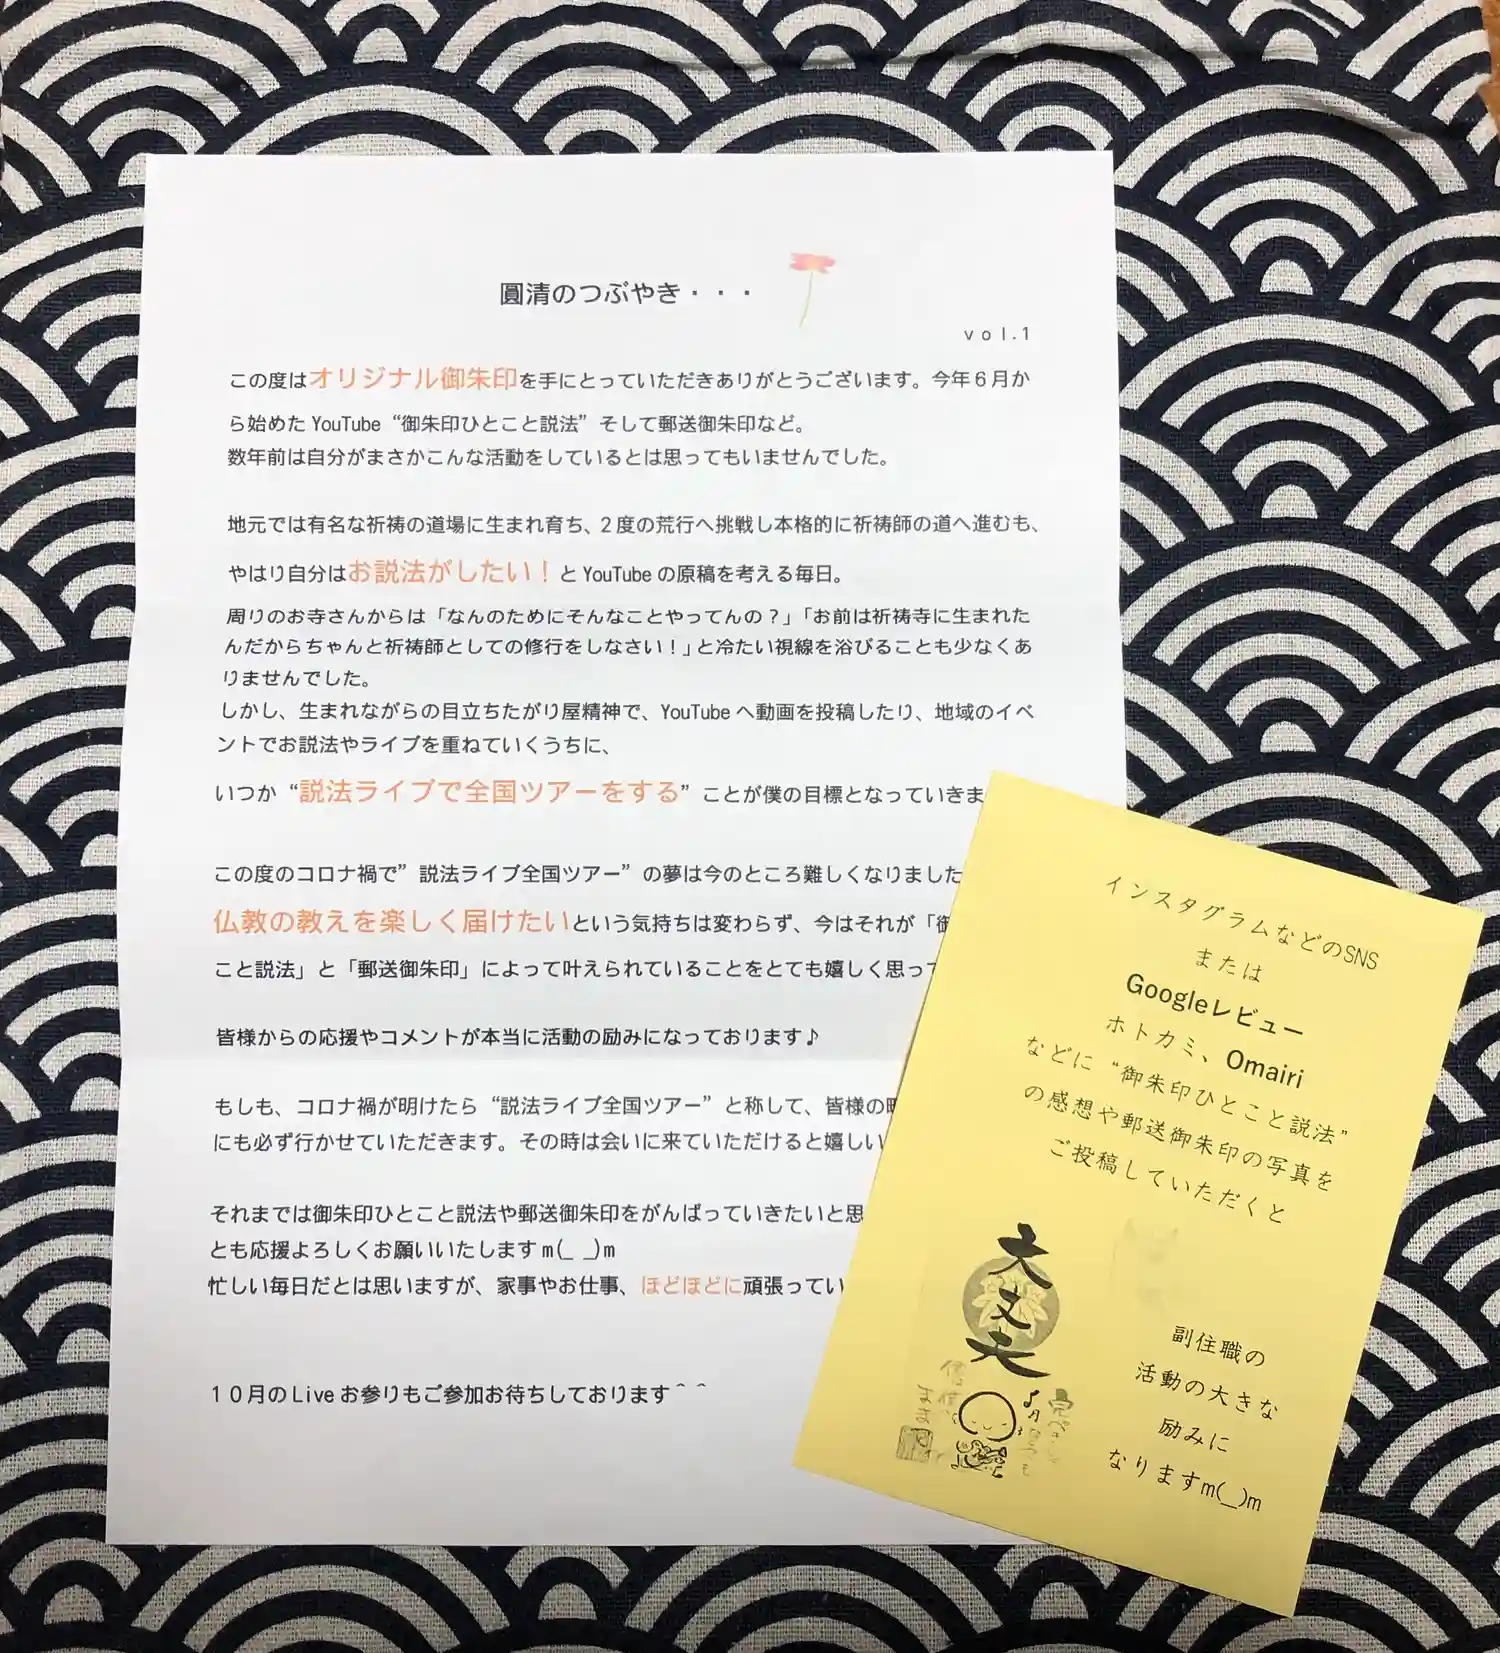 圓清のつぶやき・・・
vol.1
この度はオリジナル御朱印を手にとっていただきありがとうございます。今年６月か
ら始めた YouTube“御朱印ひとこと説法”そして郵送御朱印など。
数年前は自分がまさかこんな活動をしているとは思ってもいませんでした。
地元では有名な祈祷の道場に生まれ育ち、２度の荒行へ挑戦し本格的に祈祷師の道へ進むも、
やはり自分はお説法がしたい！と YouTube の原稿を考える毎日。
周りのお寺さんからは「なんのためにそんなことやってんの？」「お前は祈祷寺に生まれた
んだからちゃんと祈祷師としての修行をしなさい！」と冷たい視線を浴びることも少なくあ
りませんでした。
しかし、生まれながらの目立ちたがり屋精神で、YouTube へ動画を投稿したり、地域のイベ
ントでお説法やライブを重ねていくうちに、
いつか“説法ライブで全国ツアーをする”ことが僕の目標となっていきま
この度のコロナ禍で”説法ライブ全国ツアー”の夢は今のところ難しくなりました
仏教の教えを楽しく届けたいという気持ちは変わらず、今はそれが「御
こと説法」と「郵送御朱印」によって叶えられていることをとても嬉しく思って
皆様からの応援やコメントが本当に活動の励みになっております♪
もしも、コロナ禍が明けたら“説法ライブ全国ツアー”と称して、皆様の
にも必ず行かせていただきます。その時は会いに来ていただけると嬉しい
それまでは御朱印ひとこと説法や郵送御朱印をがんばっていきたいと思
とも応援よろしくお願いいたしますm(_ _)m
忙しい毎日だとは思いますが、家事やお仕事、ほどほどに頑張ってい
１０月の Live お参りもご参加お待ちしております＾＾
インスタグラムなどのSNS
または
Googleレビュー
ホトカミ、Omairi
などに“御朱印ひとこと説法”
の感想や郵送御朱印の写真を
ご投稿していただくと
大丈夫
副住職の
活動の大きな
励みに
なりますm(_)m